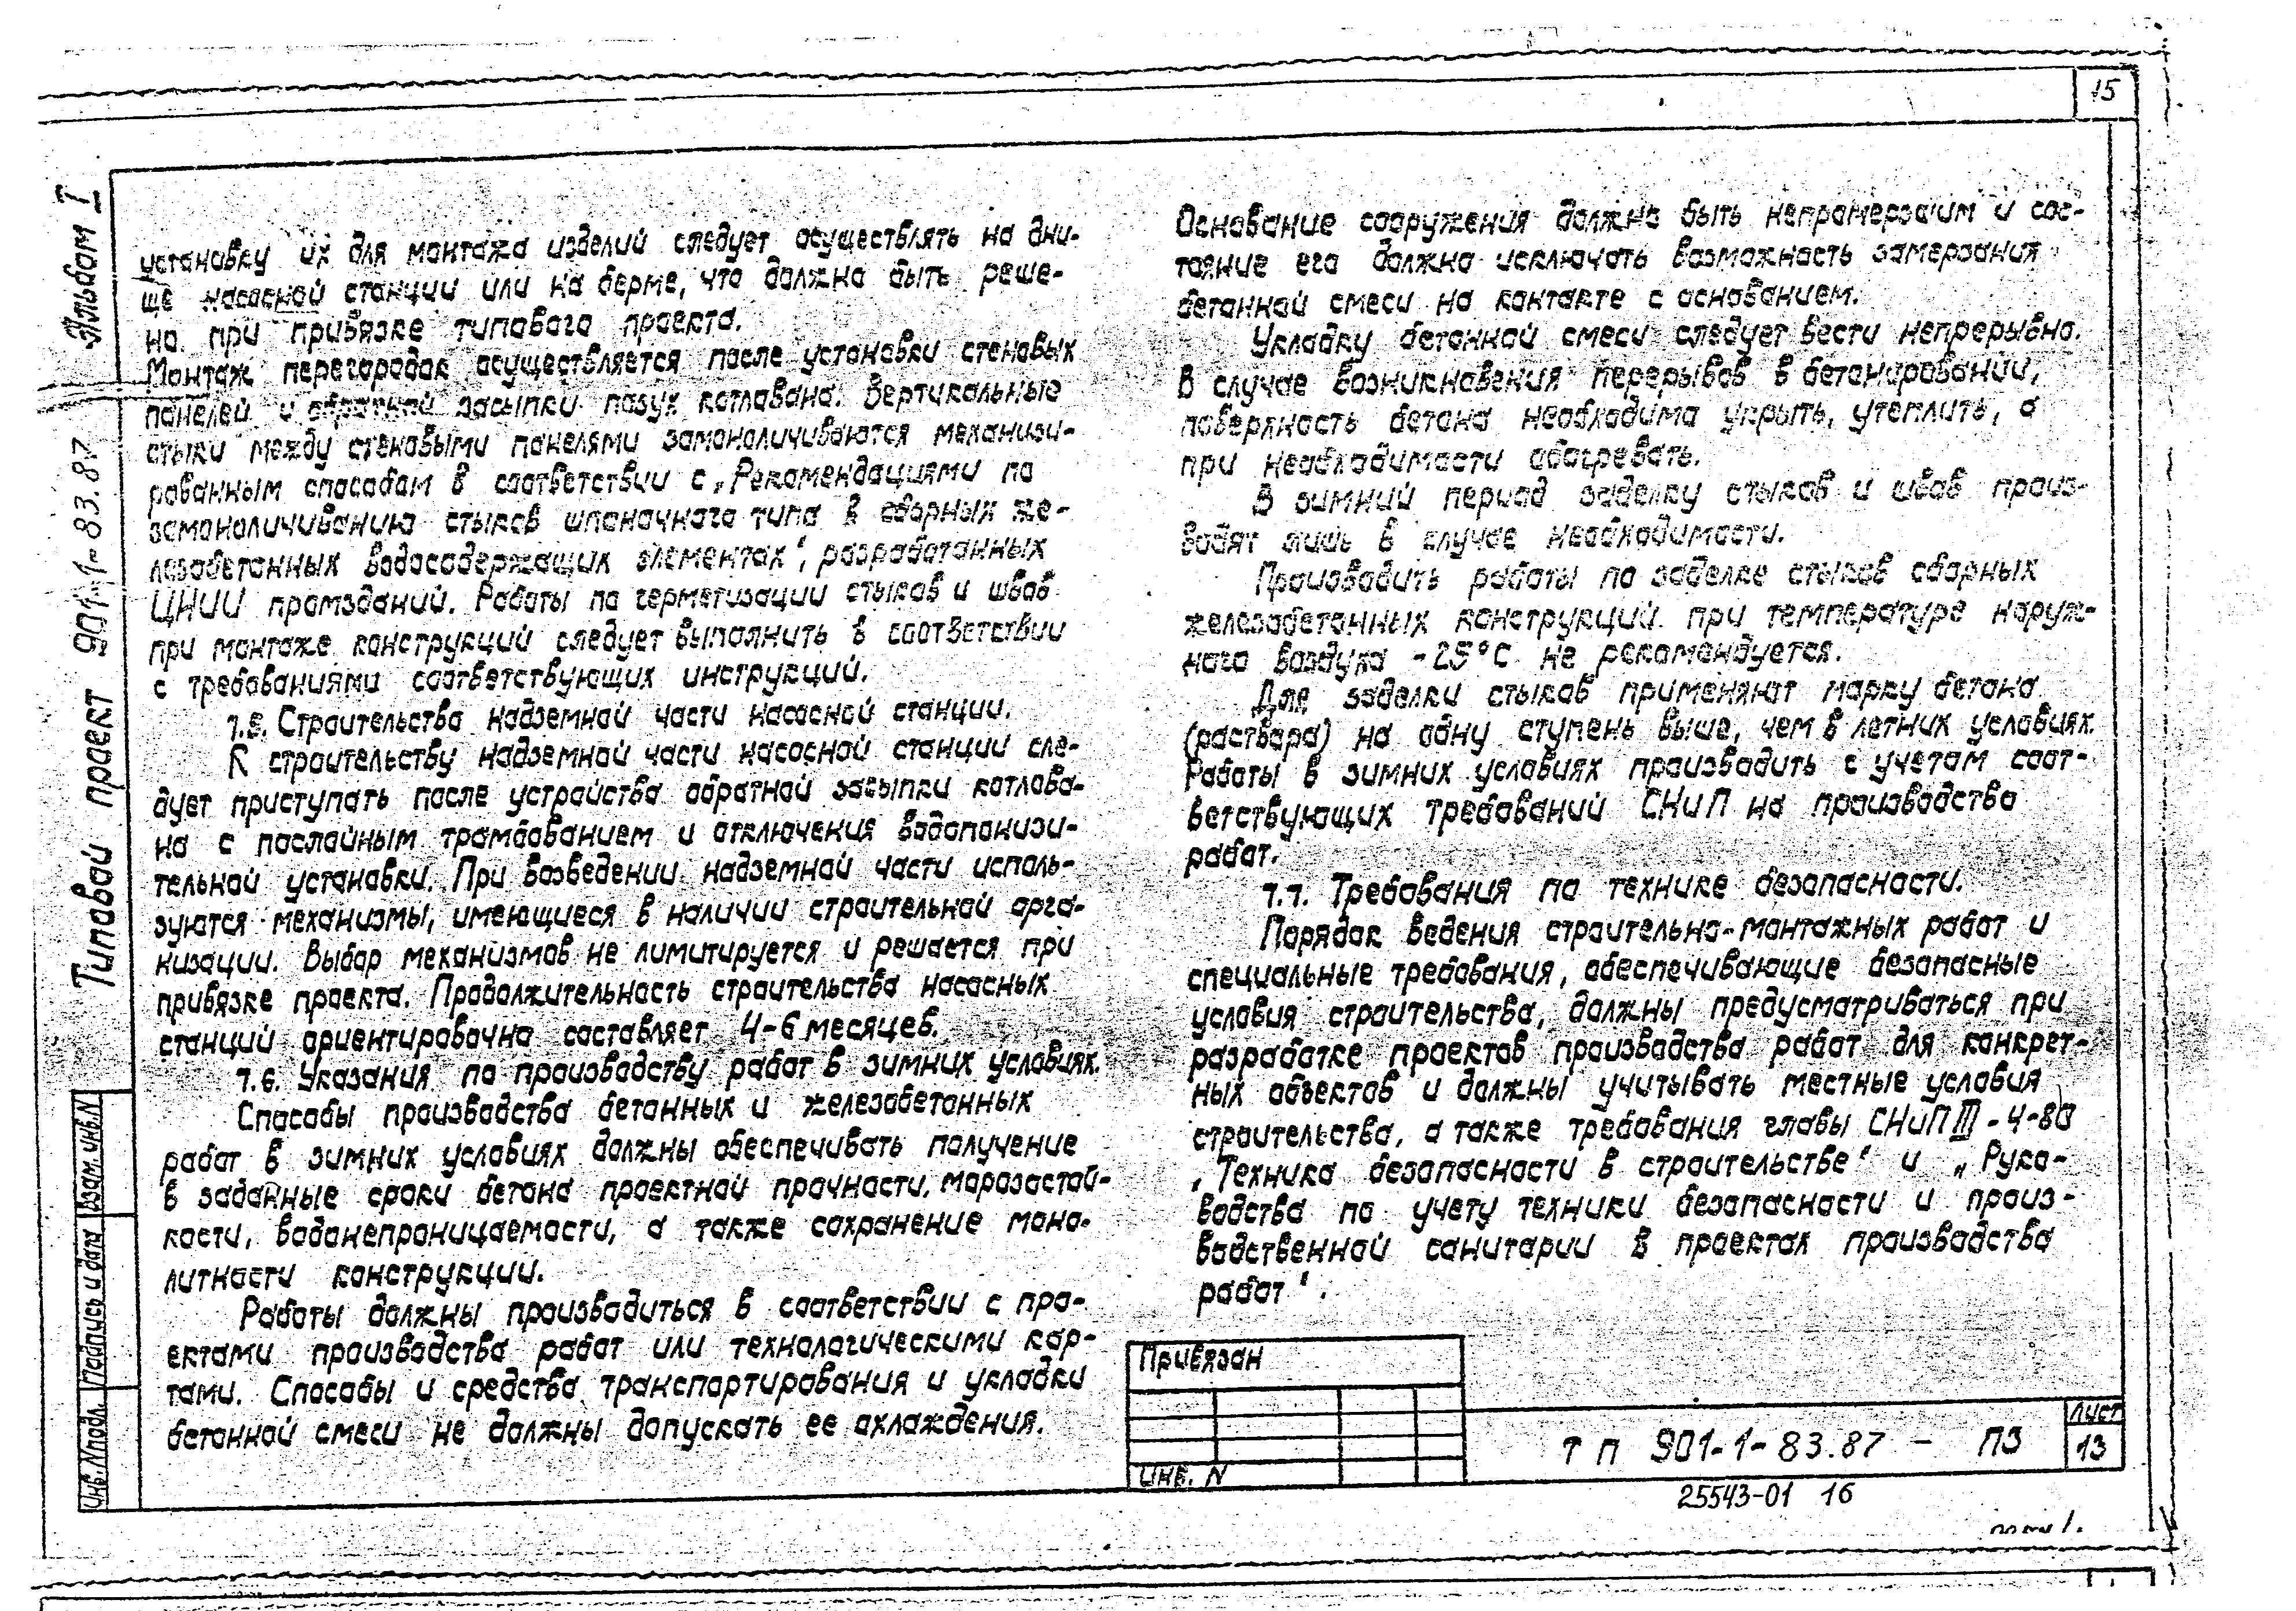 15
Альбом I
Типовой проект 901-1-83.87
установку их для монтажа изделий следует осуществлять на дни-
ще насосной станции или на берме, что должно быть реше-
но при привязке типового проекта.
Монтаж перегородок осуществляется после установки стеновых
панелей и обратной засыпки пазух котлована. Вертикальные
стыки между стеновыми панелями замоноличиваются механизи-
рованным способом в соответствии с „Рекомендациями по
замоноличиванию стыков шпоночного типа в сборных же-
лезобетонных водосодержащих элементах", разработанных
ЦНИИ промзданий. Работы по герметизации стыков и швов
при монтаже конструкций следует выполнить в соответствии
с требованиями соответствующих инструкций.
7.5. Строительство надземной части насосной станции.
К строительству надземной части насосной станции сле-
дует приступать после устройства обратной засыпки котлова-
на с послойным трамбованием и отключения водопонизи-
тельной установки. При возведении надземной части исполь-
зуются механизмы, имеющиеся в наличии строительной орга-
низации. Выбор механизмов не лимитируется и решается при
привязке проекта. Продолжительность строительства насосных
станций ориентировочно составляет 4-6 месяцев.
7.6. Указания по производству работ в зимних условиях.
Способы производства бетонных и железобетонных
работ в зимних условиях должны обеспечивать получение
в заданные сроки бетона проектной прочности, морозостой-
кости, водонепроницаемости, а также сохранение моно-
литности конструкции.
Работы должны производиться в соответствии с про-
ектами производства работ или технологическими кар-
тами. Способы и средства транспортирования и укладки
бетонной смеси не должны допускать ее охлаждения.
Основание сооружения должно быть непромерзшим и сос-
тояние его должно исключать возможность замерзания
бетонной смеси на контакте с основанием.
Укладку бетонной смеси следует вести непрерывно.
В случае возникновения перерывов в бетонировании,
поверхность бетона необходимо укрыть, утеплить, а
при необходимости обогревать.
В зимний период заделку стыков и швов произ-
водят лишь в случае необходимости.
Производить работы по заделке стыков сборных
железобетонных конструкций при температуре наруж-
ного воздуха -25°С не рекомендуется.
Для заделки стыков применяют марку бетона
(раствора) на одну ступень выше, чем в летних условиях.
Работы в зимних условиях производить с учетом соот-
ветствующих требований СНиП на производство
работ.
7.7. Требования по технике безопасности.
Порядок ведения строительно-монтажных работ и
специальные требования, обеспечивающие безопасные
условия строительства, должны предусматриваться при
разработке проектов производства работ для конкрет-
ных объектов и должны учитывать местные условия
строительства, а также требования главы СНиП III-4-80
„Техника безопасности в строительстве" и „Руко-
водства по учету техники безопасности и произ-
водственной санитарии в проектах производства
работ".
Привязан
Инв. N
ТП 901-1-83.87 - ПЗ
Лист
13
25543-01 16
Взам. инв. N
Подпись и дата
Инв. N подл.